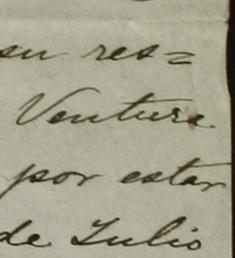 su res=
Ventura
por estar
de Julio